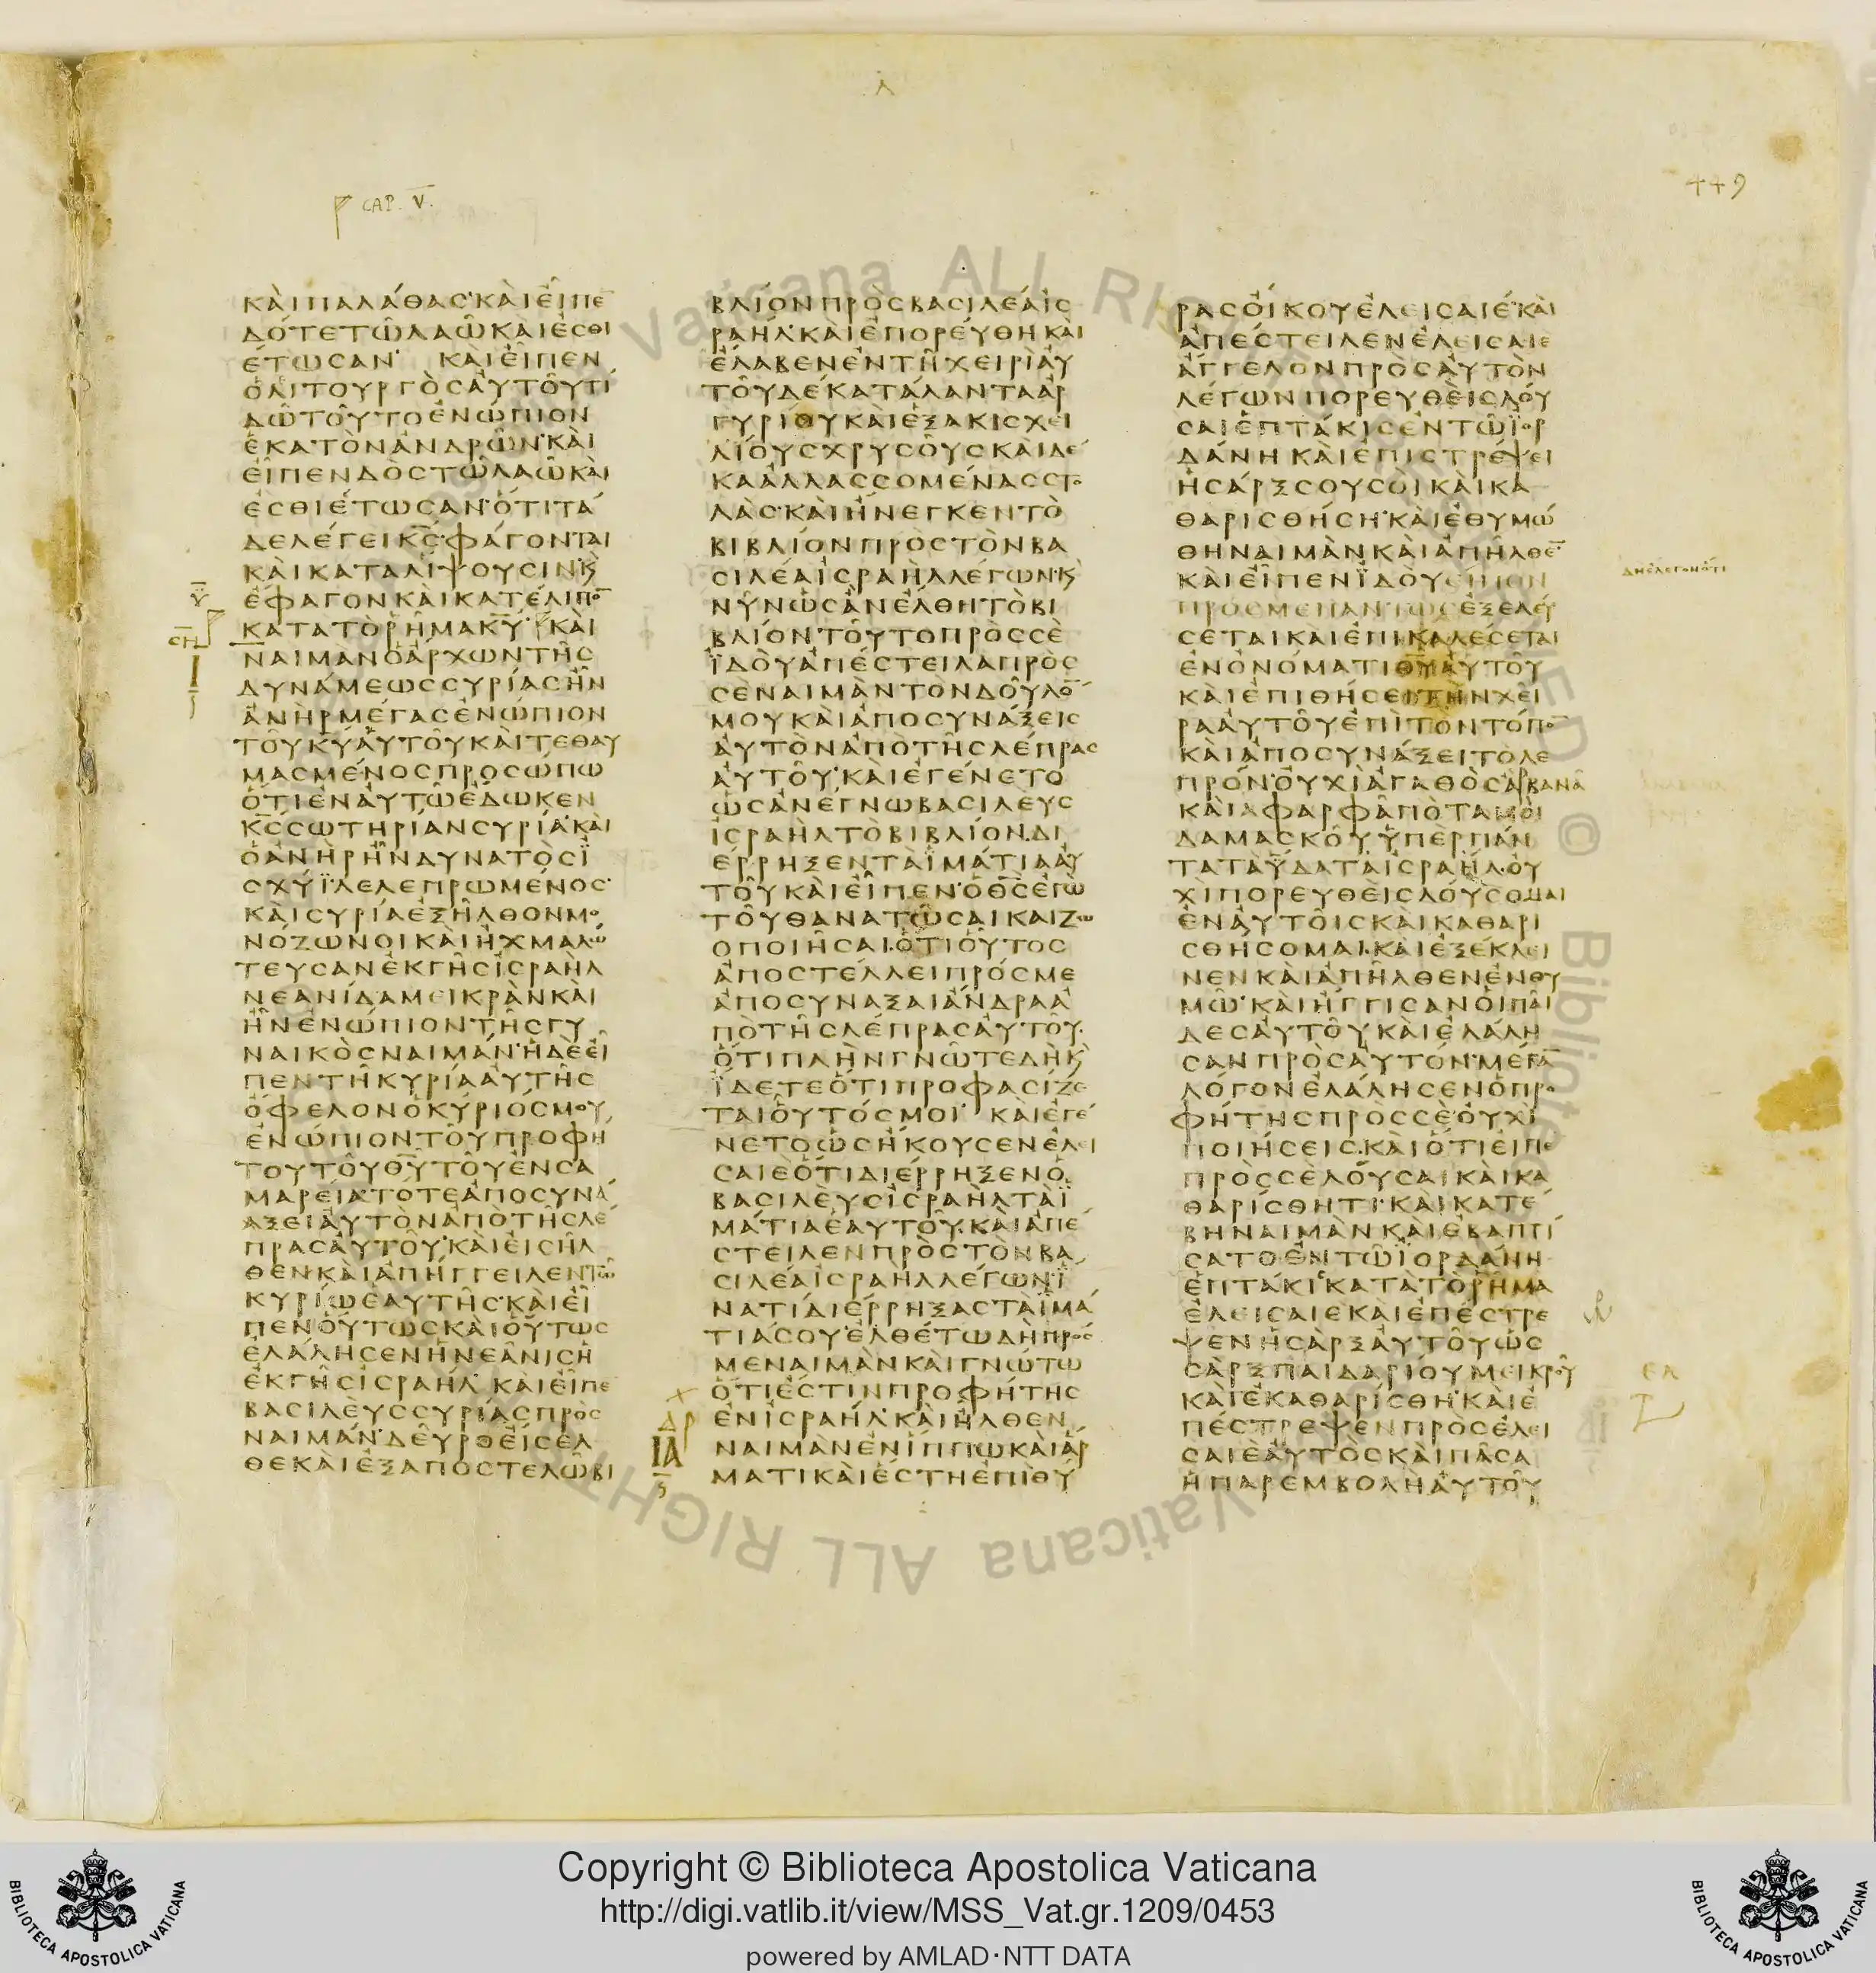 CAP. V.
449
ΚΑΙΠΑΛΑΘΑΣ·ΚΑΙΕΙΠΕ̅
ΔΟΤΕΤΩΛΑΩΚΑΙΕΣΘΙ
ΕΤΩΣΑΝ· ΚΑΙΕΙΠΕΝ
ΟΛΙΤΟΥΡΓΟΣΑΥΤΟΥΤΙ
ΔΩΤΟΥΤΟΕΝΩΠΙΟΝ
ΕΚΑΤΟΝΑΝΔΡΩΝ·ΚΑΙ
ΕΙΠΕΝΔΟΣΤΩΛΑΩΚΑΙ
ΕΣΘΙΕΤΩΣΑΝ·ΟΤΙΤΑ
ΔΕΛΕΓΕΙΚ̅Σ̅·ΦΑΓΟΝΤΑΙ
ΚΑΙΚΑΤΑΛΙΨΟΥΣΙΝ·Κ
ΕΦΑΓΟΝΚΑΙΚΑΤΕΛΙΠΟ̅
ΚΑΤΑΤΟΡΗΜΑΚ̅Υ̅· ΚΑΙ
ΝΑΙΜΑΝΟΑΡΧΩΝΤΗΣ
ΔΥΝΑΜΕΩΣΣΥΡΙΑΣΗΝ
ΑΝΗΡΜΕΓΑΣΕΝΩΠΙΟΝ
ΤΟΥΚ̅Υ̅ΑΥΤΟΥΚΑΙΤΕΘΑΥ
ΜΑΣΜΕΝΟΣΠΡΟΣΩΠΩ
ΟΤΙΕΝΑΥΤΩΕΔΩΚΕΝ
Κ̅Σ̅ΣΩΤΗΡΙΑΝΣΥΡΙΑ·ΚΑΙ
ΟΑΝΗΡΗΝΔΥΝΑΤΟΣΪ
ΣΧΥΪ·ΛΕΛΕΠΡΩΜΕΝΟΣ·
ΚΑΙΣΥΡΙΑΕΞΗΛΘΟΝΜΟ
ΝΟΖΩΝΟΙΚΑΙΗΧΜΑΛΩ
ΤΕΥΣΑΝΕΚΓΗΣΙΣΡΑΗΛ
ΝΕΑΝΙΔΑΜΕΙΚΡΑΝΚΑΙ
ΗΝΕΝΩΠΙΟΝΤΗΣΓΥ
ΝΑΙΚΟΣΝΑΙΜΑΝ·ΗΔΕΕΙ
ΠΕΝΤΗΚΥΡΙΑΑΥΤΗΣ
ΟΦΕΛΟΝΟΚΥΡΙΟΣΜΟΥ
ΕΝΩΠΙΟΝΤΟΥΠΡΟΦΗ
ΤΟΥΤΟΥΘ̅Υ̅ΤΟΥΕΝΣΑ
ΜΑΡΕΙΑΤΟΤΕΑΠΟΣΥΝΑ
ΑΞΕΙΑΥΤΟΝΑΠΟΤΗΣΛΕ
ΠΡΑΣΑΥΤΟΥ·ΚΑΙΕΙΣΗΛ
ΘΕΝ·ΚΑΙΑΠΗΓΓΕΙΛΕΝΤΩ
ΚΥΡΙΩΕΑΥΤΗΣ·ΚΑΙΕΙ
ΠΕΝΟΥΤΩΣΚΑΙΟΥΤΩΣ
ΕΛΑΛΗΣΕΝΗΝΕΑΝΙΣΗ
ΕΚΓΗΣΙΣΡΑΗΛ· ΚΑΙΕΙΠΕ
ΒΑΣΙΛΕΥΣΣΥΡΙΑΣΠΡΟΣ
ΝΑΙΜΑΝ·ΔΕΥΡΟΕΙΣΕΛ
ΘΕΚΑΙΕΞΑΠΟΣΤΕΛΩΒΙ
ΒΛΙΟΝΠΡΟΣΒΑΣΙΛΕΑΙΣ
ΡΑΗΛ·ΚΑΙΕΠΟΡΕΥΘΗΚΑΙ
ΕΛΑΒΕΝΕΝΤΗΧΕΙΡΙΑΥ
ΤΟΥΔΕΚΑΤΑΛΑΝΤΑΑΡ
ΓΥΡΙΟΥΚΑΙΕΞΑΚΙΣΧΕΙ
ΛΙΟΥΣΧΡΥΣΟΥΣΚΑΙΔΕ
ΚΑΑΛΛΑΣΣΟΜΕΝΑΣΣΤΟ
ΛΑΣ·ΚΑΙΗΝΕΓΚΕΝΤΟ
ΒΙΒΛΙΟΝΠΡΟΣΤΟΝΒΑ
ΣΙΛΕΑΙΣΡΑΗΛΛΕΓΩΝ·Κ
ΝΥΝΩΣΑΝΕΛΘΗΤΟΒΙ
ΒΛΙΟΝΤΟΥΤΟΠΡΟΣΣΕ
ΪΔΟΥΑΠΕΣΤΕΙΛΑΠΡΟΣ
ΣΕΝΑΙΜΑΝΤΟΝΔΟΥΛΟ̅
ΜΟΥΚΑΙΑΠΟΣΥΝΑΞΕΙΣ
ΑΥΤΟΝΑΠΟΤΗΣΛΕΠΡΑΣ
ΑΥΤΟΥ·ΚΑΙΕΓΕΝΕΤΟ
ΩΣΑΝΕΓΝΩΒΑΣΙΛΕΥΣ
ΙΣΡΑΗΛΤΟΒΙΒΛΙΟΝ.ΔΙ
ΕΡΡΗΞΕΝΤΑΪΜΑΤΙΑΑΥ
ΤΟΥΚΑΙΕΙΠΕΝ·ΟΘ̅Σ̅ΕΓΩ
ΤΟΥΘΑΝΑΤΩΣΑΙΚΑΙΖΩ
ΟΠΟΙΗΣΑΙ.ΟΤΙΟΥΤΟΣ
ΑΠΟΣΤΕΛΛΕΙΠΡΟΣΜΕ
ΑΠΟΣΥΝΑΞΑΙΑΝΔΡΑΑ
ΠΟΤΗΣΛΕΠΡΑΣΑΥΤΟΥ·
ΟΤΙΠΛΗΝΓΝΩΤΕΔΗΚ
ΪΔΕΤΕΟΤΙΠΡΟΦΑΣΙΖΕ
ΤΑΙΟΥΤΟΣΜΟΙ· ΚΑΙΕΓΕ
ΝΕΤΟΩΣΗΚΟΥΣΕΝΕΛΕΙ
ΣΑΙΕΟΤΙΔΙΕΡΡΗΞΕΝΟ
ΒΑΣΙΛΕΥΣΙΣΡΑΗΛΤΑΪ
ΜΑΤΙΑΕΑΥΤΟΥ·ΚΑΙΑΠΕ
ΣΤΕΙΛΕΝΠΡΟΣΤΟΝΒΑ
ΣΙΛΕΑΙΣΡΑΗΛΛΕΓΩΝ·Ϊ
ΝΑΤΙΔΙΕΡΡΗΞΑΣΤΑΪΜΑ
ΤΙΑΣΟΥ·ΕΛΘΕΤΩΔΗΠΡΟΣ
ΜΕΝΑΙΜΑΝΚΑΙΓΝΩΤΩ
ΟΤΙΕΣΤΙΝΠΡΟΦΗΤΗΣ
ΕΝΙΣΡΑΗΛ·ΚΑΙΗΛΘΕΝ
ΝΑΙΜΑΝΕΝΙΠΠΩΚΑΙΑΡ
ΜΑΤΙΚΑΙΕΣΤΗΕΠΙΘΥ
ΙΑ
ΡΑΣΟΙΚΟΥΕΛΕΙΣΑΙΕ·ΚΑΙ
ΑΠΕΣΤΕΙΛΕΝΕΛΕΙΣΑΙΕ
ΑΓΓΕΛΟΝΠΡΟΣΑΥΤΟΝ
ΛΕΓΩΝΠΟΡΕΥΘΕΙΣΛΟΥ
ΣΑΙΕΠΤΑΚΙΣΕΝΤΩΪΟΡ
ΔΑΝΗΚΑΙΕΠΙΣΤΡΕΨΕΙ
ΗΣΑΡΞΣΟΥΣΟΙΚΑΙΚΑ
ΘΑΡΙΣΘΗΣΗ·ΚΑΙΕΘΥΜΩ
ΘΗΝΑΙΜΑΝΚΑΙΑΠΗΛΘΕ̅
ΚΑΙΕΙΠΕΝΪΔΟΥ
ΠΡΟΣΜΕΠΑΝΤΩΣΕΞΕΛΕΥ
ΣΕΤΑΙΚΑΙΕΠΙΚΑΛΕΣΕΤΑΙ
ΕΝΟΝΟΜΑΤΙΘ̅Υ̅ΑΥΤΟΥ
ΚΑΙΕΠΙΘΗΣΕΙΤΗΝΧΕΙ
ΡΑΑΥΤΟΥΕΠΙΤΟΝΤΟΠΟ̅
ΚΑΙΑΠΟΣΥΝΑΞΕΙΤΟΛΕ
ΠΡΟΝ·ΟΥΧΙΑΓΑΘΟΣΑΡΒΑΝΑ
ΚΑΙΑΦΑΡΦΑΠΟΤΑΜΟΙ
ΔΑΜΑΣΚΟΥΫΠΕΡΠΑΝ
ΤΑΤΑΫΔΑΤΑΙΣΡΑΗΛ·ΟΥ
ΧΙΠΟΡΕΥΘΕΙΣΛΟΥΣΟΜΑΙ
ΕΝΑΥΤΟΙΣΚΑΙΚΑΘΑΡΙ
ΣΘΗΣΟΜΑΙ.ΚΑΙΕΞΕΚΛΕΙ
ΝΕΝΚΑΙΑΠΗΛΘΕΝΕΝΘΥ
ΜΩ·ΚΑΙΗΓΓΙΣΑΝΟΙΠΑΙ
ΔΕΣΑΥΤΟΥΚΑΙΕΛΑΛΗ
ΣΑΝΠΡΟΣΑΥΤΟΝ·ΜΕΓΑ̅
ΛΟΓΟΝΕΛΑΛΗΣΕΝΟΠΡΟ
ΦΗΤΗΣΠΡΟΣΣΕ·ΟΥΧΙ
ΠΟΙΗΣΕΙΣ·ΚΑΙΟΤΙΕΙΠΕ
ΠΡΟΣΣΕΛΟΥΣΑΙΚΑΙΚΑ
ΘΑΡΙΣΘΗΤΙ·ΚΑΙΚΑΤΕ
ΒΗΝΑΙΜΑΝΚΑΙΕΒΑΠΤΙ
ΣΑΤΟΕΝΤΩΪΟΡΔΑΝΗ
ΕΠΤΑΚΙΚΑΤΑΤΟΡΗΜΑ
ΕΛΕΙΣΑΙΕΚΑΙΕΠΕΣΤΡΕ
ΨΕΝΗΣΑΡΞΑΥΤΟΥΩΣ
ΣΑΡΞΠΑΙΔΑΡΙΟΥΜΕΙΚΡΟΥ
ΚΑΙΕΚΑΘΑΡΙΣΘΗ·ΚΑΙΕ
ΠΕΣΤΡΕΨΕΝΠΡΟΣΕΛΕΙ
ΣΑΙΕΑΥΤΟΣΚΑΙΠΑΣΑ
ΗΠΑΡΕΜΒΟΛΗΑΥΤΟΥ
Vaticana ALL RIGHTS RESERVED © Biblioteca
Copyright © Biblioteca Apostolica Vaticana
http://digi.vatlib.it/view/MSS_Vat.gr.1209/0453
powered by AMLAD·NTT DATA
BIBLIOTECA APOSTOLICA VATICANA
BIBLIOTECA APOSTOLICA VATICANA